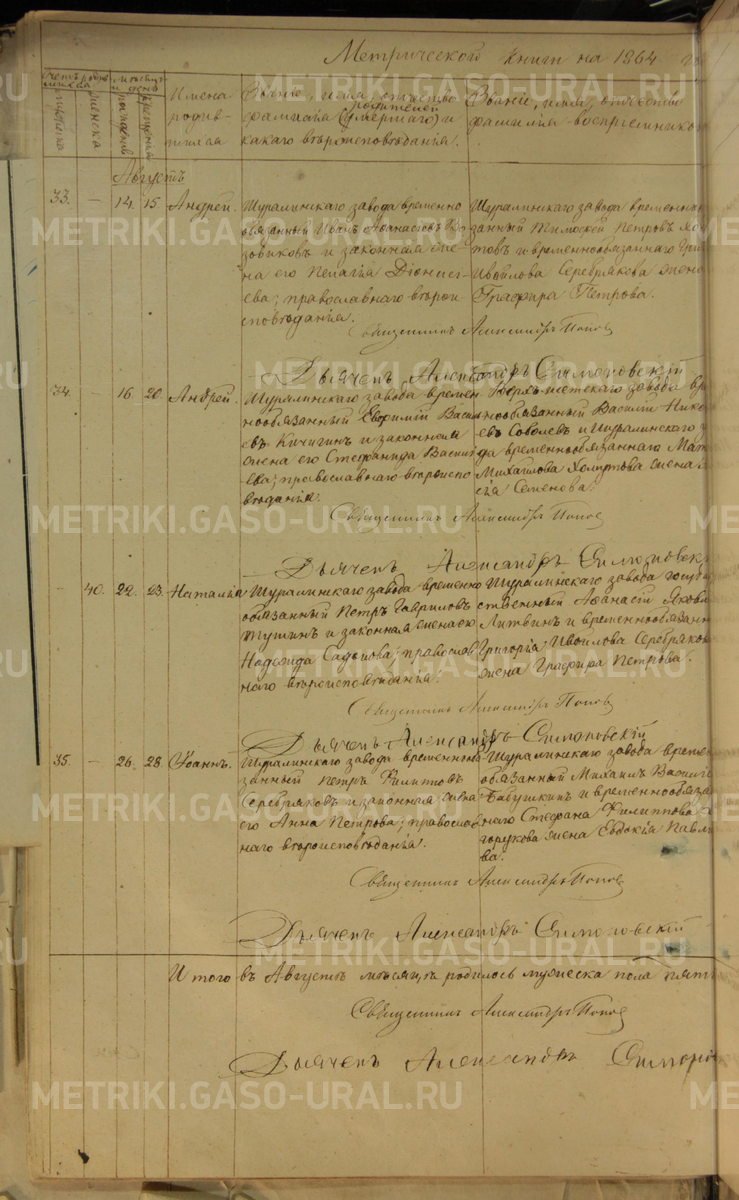 Метрической книги на 1864
Счетъ родившихся
Мѣсяцъ и день
мужеска
женска
рожденія
крещенія
Имена родив-
шихся
Званіе, имя, отчество
родителей
фамилія и
какаго вѣроисповѣданія.
Званіе, имя, отчество
фамилія воспріемников
Августъ
33. — 14. 15 Андрей.
Шуралинскаго завода временно
обязанный Иванъ Аѳанасьевъ
зовиковъ и законная же-
на его Пелагія Діонисі-
ева; православнаго вѣрои
сповѣданія.
Шуралинскаго завода временно
занный Тимофей Петровъ
товъ и временнообязаннаго Гри
Ивойлова Серебрякова жена
Графира Петрова.
Священникъ Александръ Попов
Дьячекъ Александръ Симоновскій
34. — 16 20 Андрей.
Шуралинскаго завода времен
нообязанный Евфимій Васил
евъ Кичигинъ и законная
жена его Стефанида Василь
ева; православнаго вѣроиспо
вѣданія.
завода вр
нообязанный Василій Нико
евъ Соболевъ и Шуралинскаго
да временнообязаннаго Мат
Михайлова жена
сія Семенова.
Священникъ Александръ Попов
Дьячекъ Александръ Симоновск
- 40. 22. 23. Наталія
Шуралинскаго завода временно
обязанный Петръ Гавриловъ
Тушинъ и законная жена его
Надежда Савинова; православ
наго вѣроисповѣданія.
Шуралинскаго завода госуда
ственный Аѳанасій Яковл
Литвинъ и временнообязанн
Григорія Ивойлова Серебряков
жена Графира Петрова.
Священникъ Александръ Попов
Дьячекъ Александръ Симоновскій
35. — 26. 28. Іоаннъ.
Шуралинскаго завода временно
занный Петръ Филиповъ
Серебряковъ и законная жена
его Анна Петрова; православ
наго вѣроисповѣданія.
Шуралинскаго завода времен
обязанный Михаилъ Василь
Бабушкинъ и временнообяза
наго Стефана Филиппова
жена Евдокія Павло
ва.
Священникъ Александръ Попов
Дьячекъ Александръ Симоновскій
Итого въ Августѣ мѣсяцѣ родилось мужеска пола пять
Священникъ Александръ Попов
Дьячекъ Александръ Симонов
METRIKI.GASO-URAL.RU